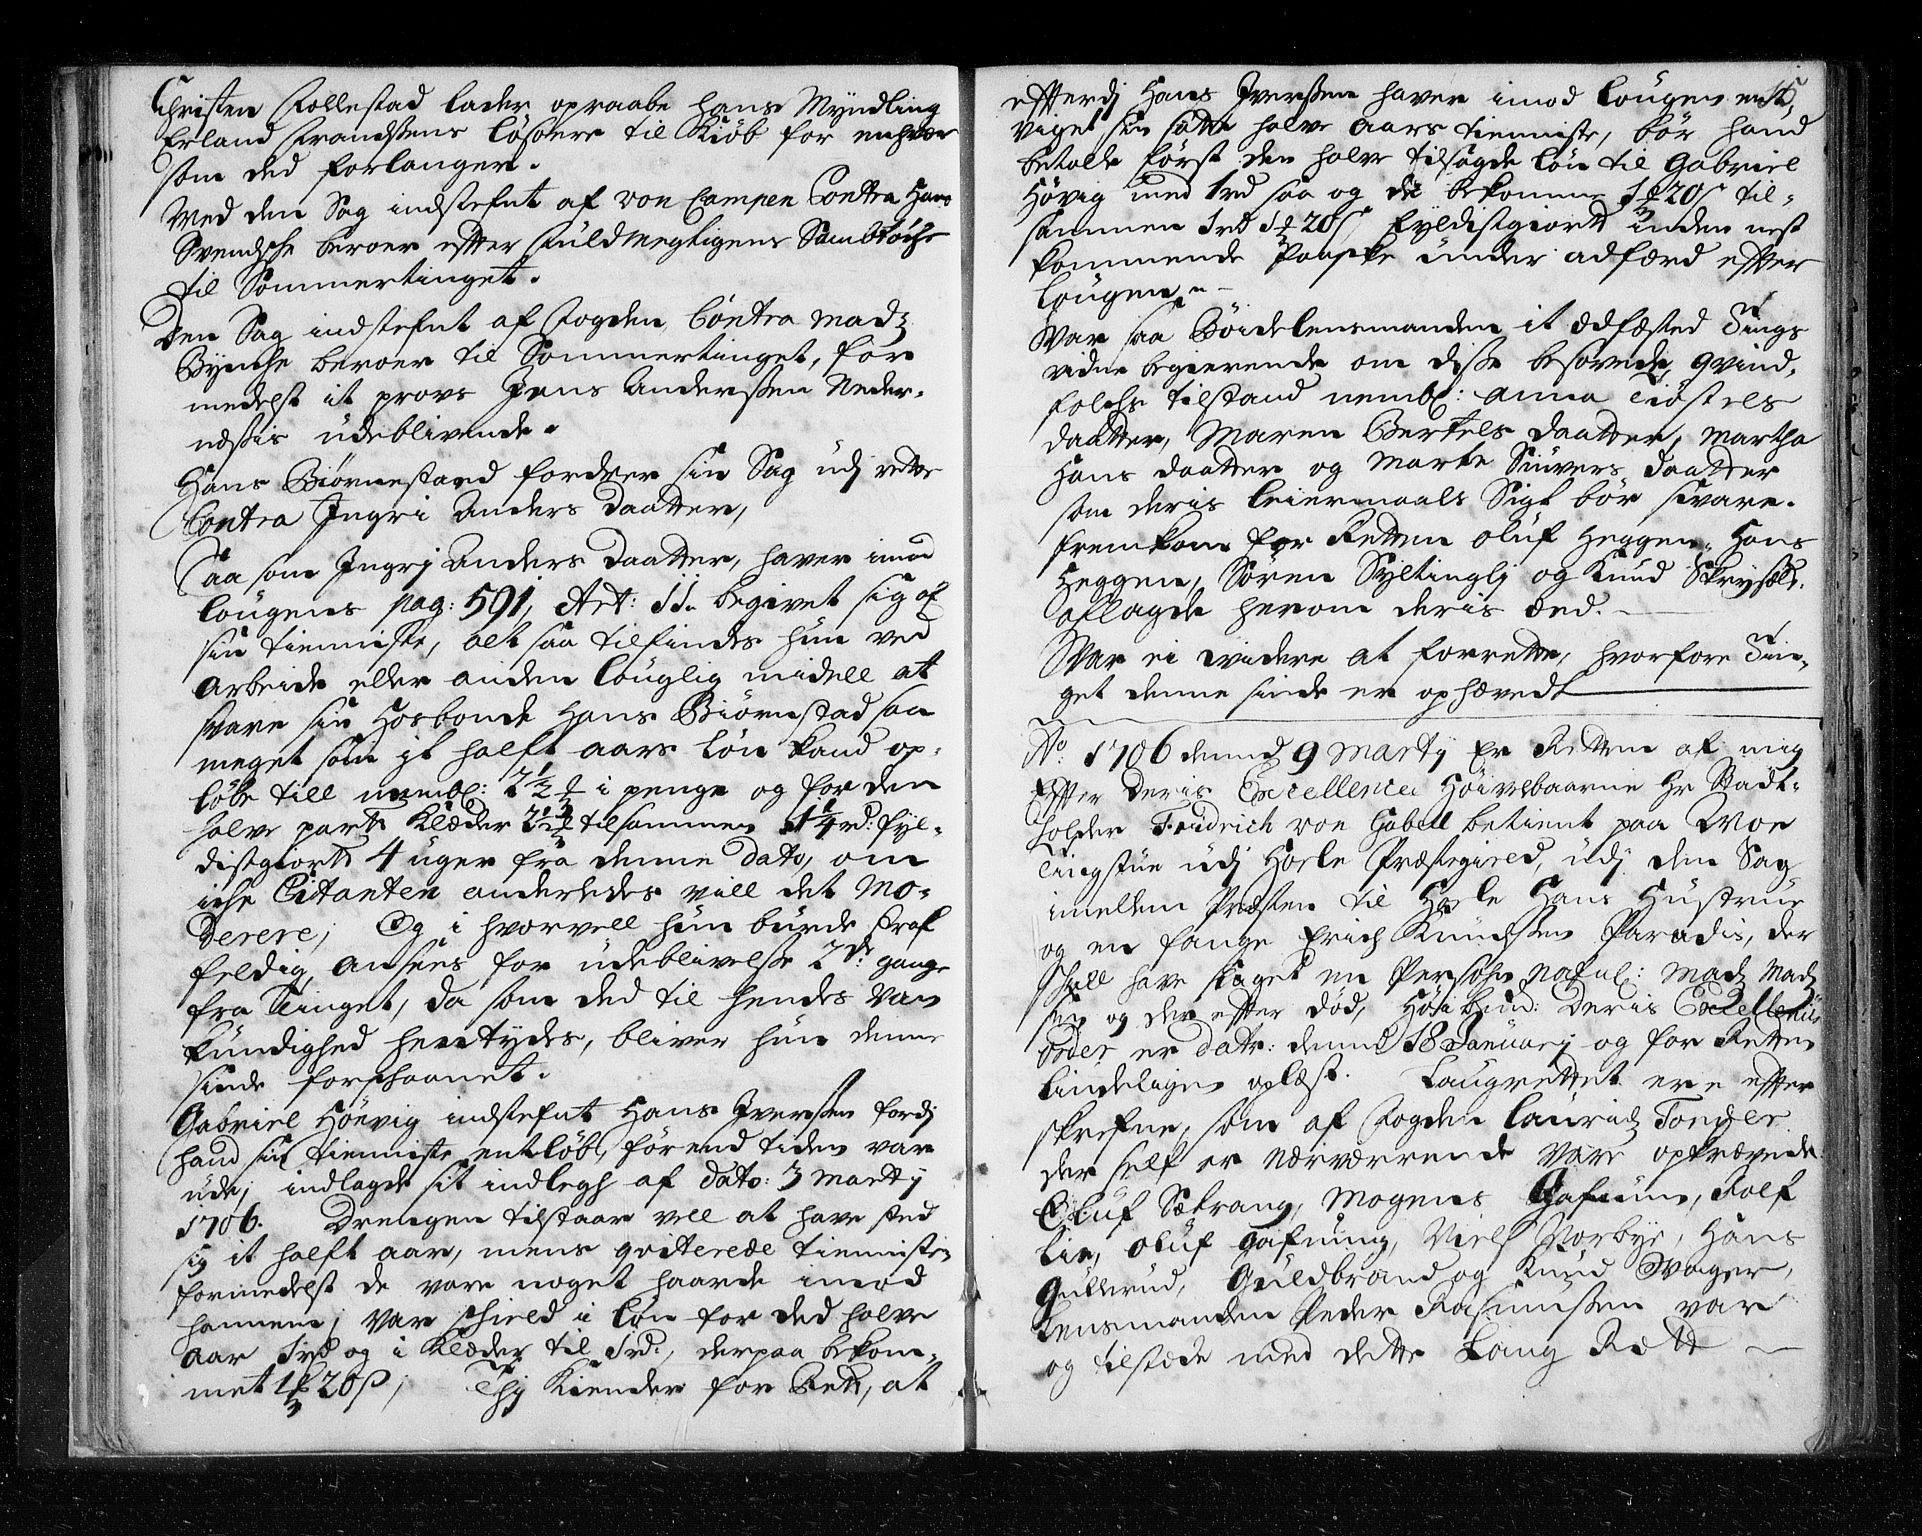 Christen Follestad lader opraabe hans Myndling
Erland Frandsens løsøere til Kiøb for enhver
som ded forlanger.
Ved den Sag indstefnt af von Campen Contra Hans
Svendsche beroer efter fuldmegtigens Samtøche
til Sommertinget.
Den Sag indstefnt af fogden Contra Madz
Bynche beroer til Sommertinget, for
medelst it provs Jens Andersen Neder-
udeblivende.
Hans Biørnestad fordrer sin Sag udj rette
Contra Ingri Anders Daatter,
Saa som Ingrj Anders Daatter, haver imod
lougens pag: 591, Art: 11. begivet sig af
sin tienniste, alt saa tilfindes hun ved
Arbeide eller anden louglig midell at
svare sin Hosbonde Hans Biørnstad saa
meget som it halft aars løn kand op-
løbe till nembl: 2½ i penge og for den
halve part Klæder 2½ tilsammen 1¼ rd: fyl-
distgiort 4 uger fra denne dato, om
iche Citanten anderledes vill det Mo-
derere, Og i hvorvell hun burde straf
feldig ansees for udeblivelse 2de gange
fra Tinget, da som ded til hendes van
kundighed hentydes, bliver hun denne
sinde forschaanet.
Gabriel Høvig indstefnt Hans Iversen fordj
hand sin tienniste entløb, før end tiden var
ude, indlagde sit indlegh af dato: 3 Martij
1706. Drengen tilstaar vell at have sted
sig it halft aar, mens qviterede tiennisten
formedelst de vare noget haarde imod
hannem, var schield i løn for ded halve
aar 1rd og i Klæder til 1rd:, derpaa bekom-
met 1 20 ß, Thj Kiender for Rett, at
15,
efterdj Hans Iversen haver imod lougen ent,
viget sin satte halve aars tienniste, bør hand
betalle først den halve tilsagde løn til Gabriel
Høvig med 1rd saa og de bekomne 1 20 ß til-
sammen 1rd 1 20 ß fyldistgiort inden nest
kommende Paaske under adfærd efter
lougen.
Var saa Bøidelensmanden it ædfæsted Tings
vidne begierende om disse besovede qvind,
folchs tilstand nembl: Anna Tiøstels
daatter, Maren Bertels daatter, Martha
Hans daatter og Marte Siuvers daatter
som deris leiermaals Sigt bør svare.
fremkom for Retten Oluf Heggen, Hans
Heggen, Søren Syltinglj og Knud
aflagde herom deris æed.
Var ei videre at forrette, hvorfore Tin-
get denne sinde er ophævedt
Ao: 1706 dennd 9 Martij Er Retten af mig
Efter Deris Excellence Høivelbaarne Hr Stadt-
holder Fridrich von Gabell betient paa Moe
tingstue udj Hoele Præstegired, udj den Sag
imellem Præsten til Hoele Hans Hustrue
og en fange Erich Knudsen Paradis, der
schall have slaget en Persohn nafnl: Madz Mad
sen og der efter død, Høibem: Deris Excellencis
order er datr: dennd 18 Januarj og for Retten
lindeligen oplæst. Laugrettet ere efter
skrefne, som af fogden Lauridz Tonder
der self er nærværrende vare opkrævede.
Oluf Sætrang, Mogens Gafnum, Rolf
Lie, Oluf Gafnung, Niels Norbye, Hans
Gullerud, Guldbrand og Knud Wager,
Lensmanden Peder Rasmussen var
og tilstæde med dette Laug Rætt